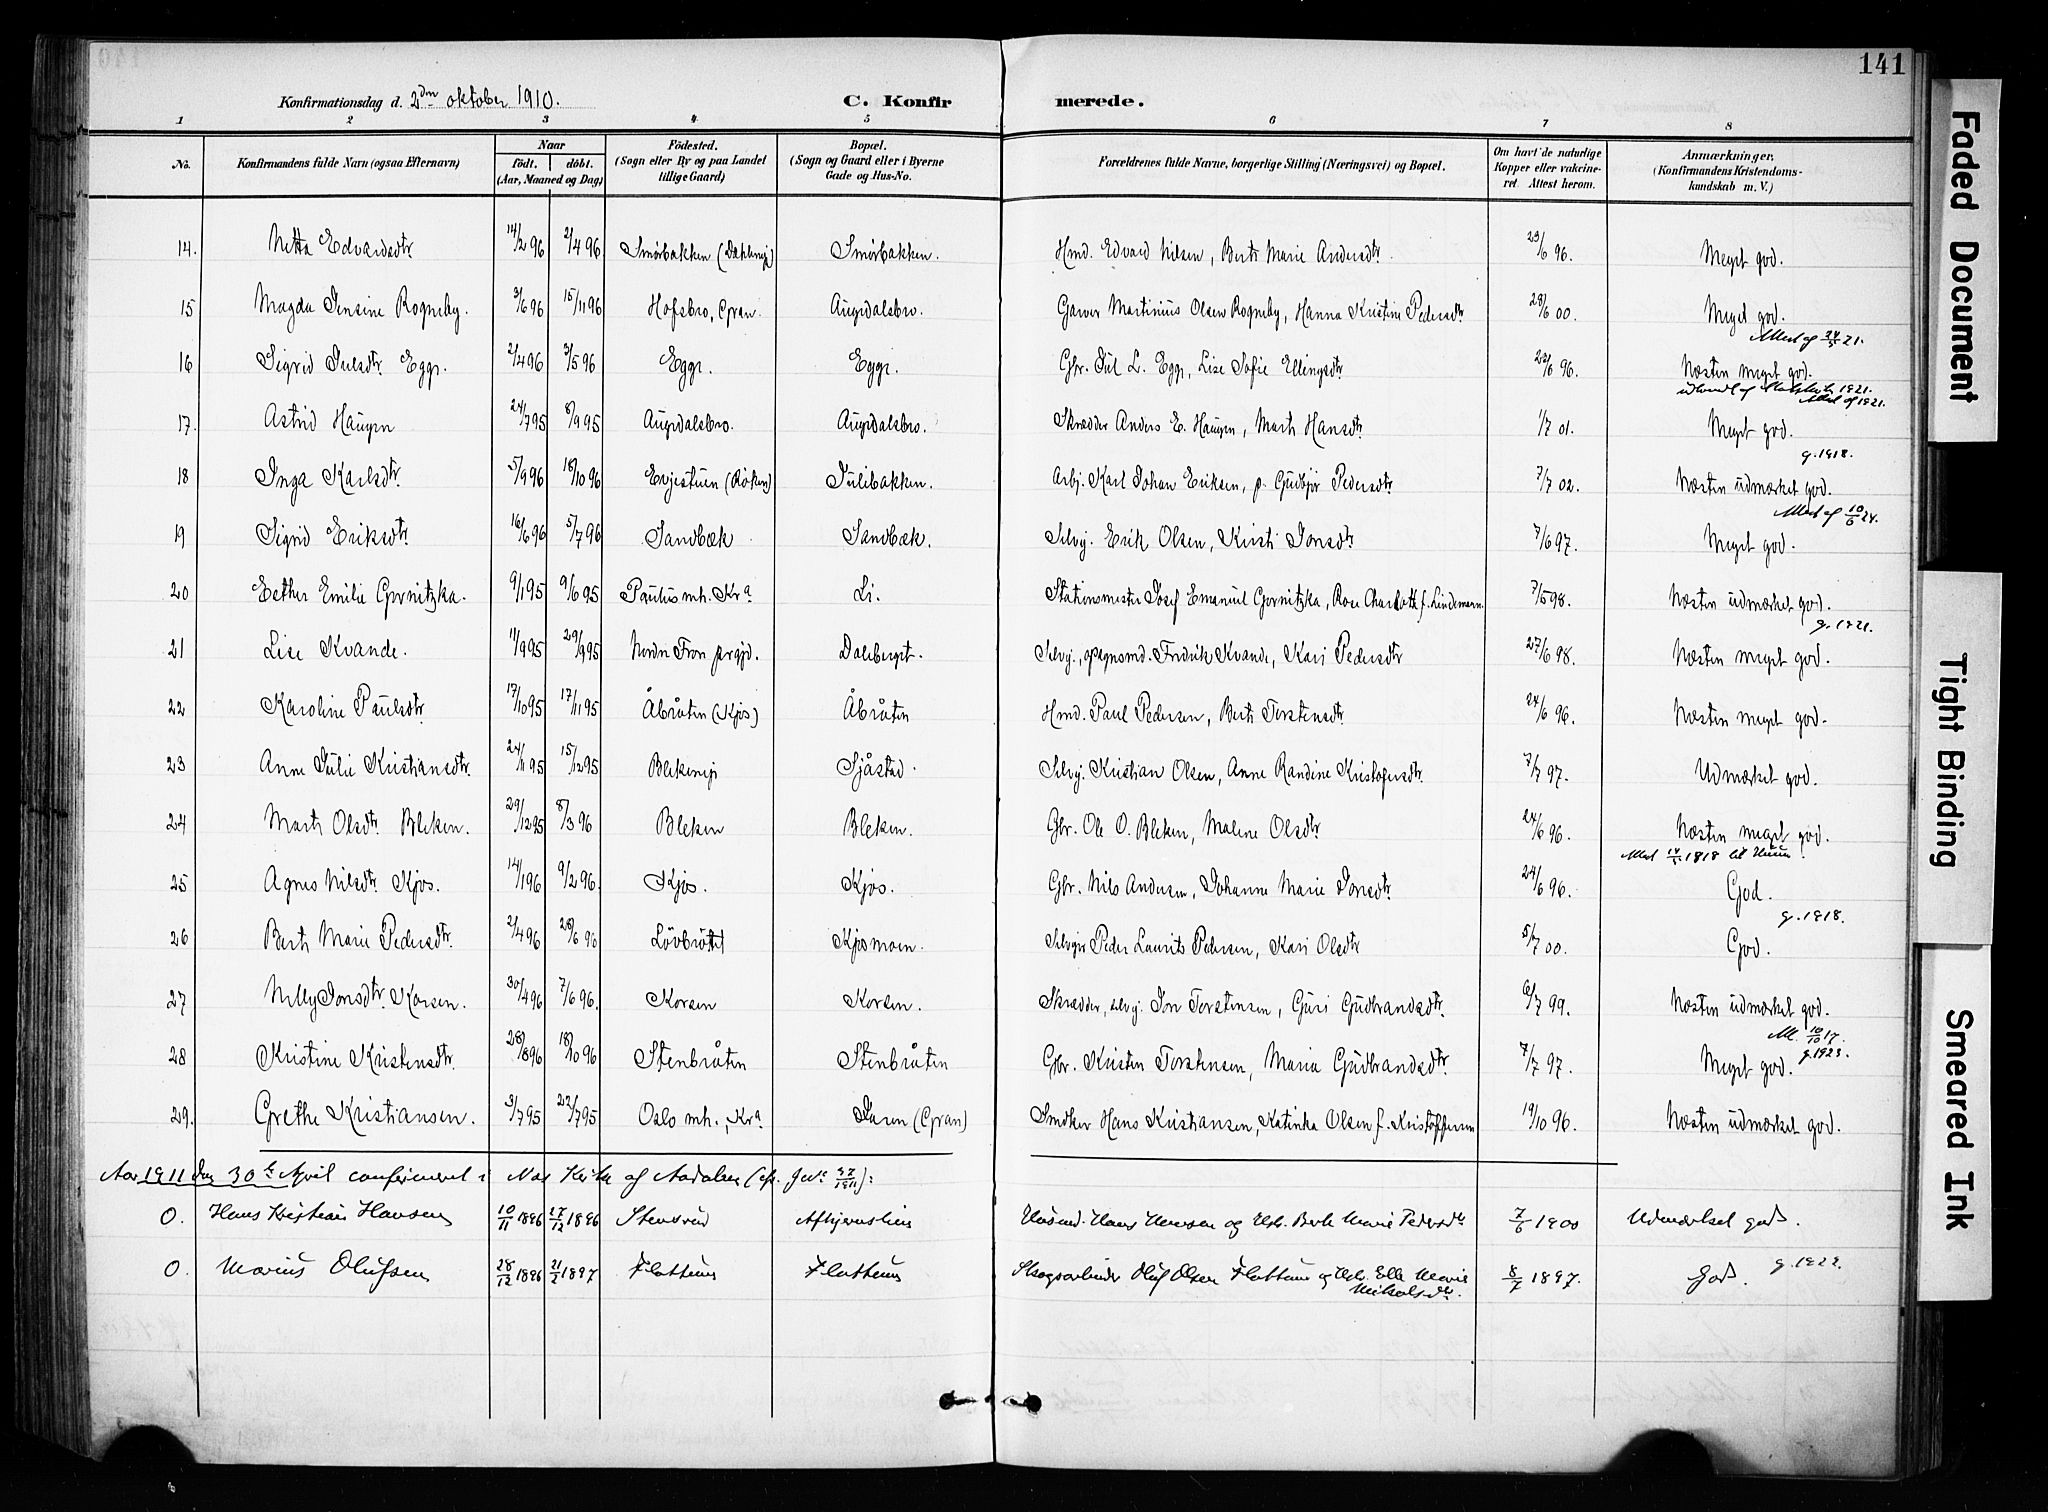 141
Konfirmationsdag d. 2den oktober 1910. C. Konfirmerede.
1 2 3 4 5 6 7 8
No. Konfirmandens fulde Navn (ogsaa Efternavn) Naar födt. döbt. (Aar, Maaned og Dag) Födested. (Sogn eller By og paa Landet tillige Gaard) Bopæl. (Sogn og Gaard eller i Byerne Gade og Hus-No. Forældrenes fulde Navne, borgerlige Stilling (Næringsvei) og Bopæl. Om havt de naturlige Kopper eller vakcineret. Attest herom. Anmærkninger. (Konfirmandens Kristendomskundskab m. V.)
14. Netta Edvardsdtr. 14/2 96 2/4 96 Smörbakken Smörbakken. Hmd. Edvard Nilsen, Berte Marie Andersdtr. 23/6 96. Meget god.
15 Magda Jensine Rogneby. 3/6 96 15/11 96 Hofsbro, Gran. Augedalsbro. Garver Martinius Olsen Rogneby, Hanna Kristine Pedersdtr 28/6 00. Meget god.
Attest og 24/5 21.
16 Sigrid Julsdtr. Egge. 2/4 96 3/5 96 Egge. Egge. Gbr. Jul L. Egge, Lise Sofie Ellingsdtr 23/6 96. Næsten meget god.
1921.
Attest og 1921.
17. Astrid Haugen 24/7 95 8/9 95 Augedalsbro. Augedalsbro. Skrædder Anders E. Haugen, Marte Hansdtr. 1/7 01. Meget god.
g. 1918.
18 Inga Karlsdtr. 5/9 96 18/10 96 Evjestuen (Röken) Julibakken. Arbj. Karl Johan Eriksen, p. Gudbjör Pedersdtr 7/7 02. Næsten udmærket god.
Attest og 10/6 24.
19 Sigrid Eriksdtr. 16/6 96 5/7 96 Sandbæk Sandbæk. Selvej. Erik Olsen, Kristi Jonsdtr 7/6 97. Meget god.
20 Esther Emilie Gornitzka. 9/1 95 9/6 95 Paulus mh. Kra. Li. Stationsmester Josef Emanuel Gornitzka, Rosa Charlotte f. Lindemann. 7/5 98. Næsten udmærket god.
g. 1921.
21 Lise Kvande. 11/9 95 29/9 95 Nordre Fron prgjd. Daleberget. Selvej., opsynsmd. Fredrik Kvande, Kari Pedersdtr 27/6 98. Næsten meget god.
22 Karoline Paulsdtr. 17/10 95 17/11 95 Åbråten (Kjos) Åbråten Hmd. Paul Pedersen, Berte Torstensdtr. 24/6 96. Næsten meget god.
23 Anne Julie Kristiansdtr. 24/11 95 15/12 95 Blekeneje Sjåstad. Selvej. Kristian Olsen, Anne Randine Kristofersdtr. 7/7 97. Udmærket god.
24 Marte Olsdtr. Bleken. 29/12 95 8/3 96 Bleken Bleken. Gbr. Ole O. Bleken, Malene Olsdtr 24/6 96. Næsten meget god.
25 Agnes Nilsdtr. Kjos. 14/1 96 9/2 96. Kjos. Kjos. Gbr. Nils Andersen, Johanne Marie Jonsdtr. 24/6 96. God.
g. 1918.
26 Berte Marie Pedersdtr. 2/4 96 28/6 96 Lövbråtet Kjosmoen. Selvejer Peder Laurits Pedersen, Kari Olsdtr 5/7 00. God.
27 Nelly Jonsdtr. Korsen. 30/4 96 7/6 96. Korsen Korsen. Skrædder, selvej. Jon Torstensen, Guri Gudbrandsdtr. 6/7 99. Næsten udmærket god.
Att. 10/10 17.
28 Kristine Kristensdtr. 28/8 96 18/10 96 Stenbråten Stenbråten Gbr. Kristen Torstensen, Maria Gudbrandsdtr. 7/7 97. Meget god. g. 1923.
29. Grethe Kristiansen. 3/7 95 22/7 95 Oslo mh., Kra. Jaren (Gran) Smöker Hans Kristiansen, Katinka Olsen f. Kristoffersen 19/10 96. Næsten udmærket god.
Aar 1911 den 30te April confirmeret i Nes Kirke af Aadalen
0. Hans Kristian Hansen 10/11 1896 27/12 1896 Stensrud Husmd. Hans Hansen og Hst. Berte Marie Pedersdtr 7/6 1900 Udmærket god.
0. Marius Olufsen 28/12 1896 21/2 1897 Flattum Flattum Skogsarbeider Oluf Olsen Flattum og Hst. Elle Marie 8/7 1897. God. g. 1922.
Faded Document
Tight Binding
Smeared Ink